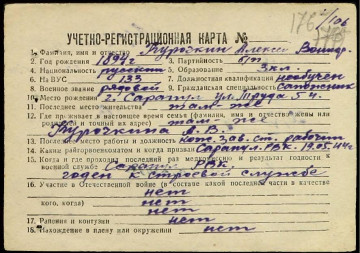 176
1/106
УЧЕТНО-РЕГИСТРАЦИОННАЯ КАРТА №
1. Фамилия, имя и отчество Курочкин Алексей
2. Год рождения 1894 г. 3. Партийность б/п
4. Национальность русский 5. Образование 3 кл.
6. На ВУС 133 7. Должностная квалификация необучен
8. Военное звание рядовой 9. Гражданская специальность сапожник
10. Место рождения г. Сарапул ул. Труда 54.
11. Последнее местожительства там же
12. Где проживает в настоящее время семья (фамилия, имя и отчество жены или родителей и точный их адрес) там же
Курочкина А. В.
13. Последнее место работы и должность рабочим
14. Каким райгорвоенкоматом и когда призван Сарапул. РВК 19.05.44 г.
15. Когда и где проходил последний раз медкомиссию и результат годности к
военной службе РВК.
годен к строевой службе
16. Участие в Отечественной войне (в составе какой последней части в качестве
кого, когда) нет
нет
нет
17. Ранения и контузии нет
18. Нахождение в плену или окружении нет